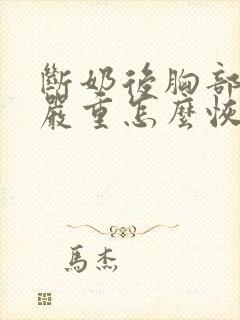 斷奶後胸部
嚴重怎麼恢
馬杰